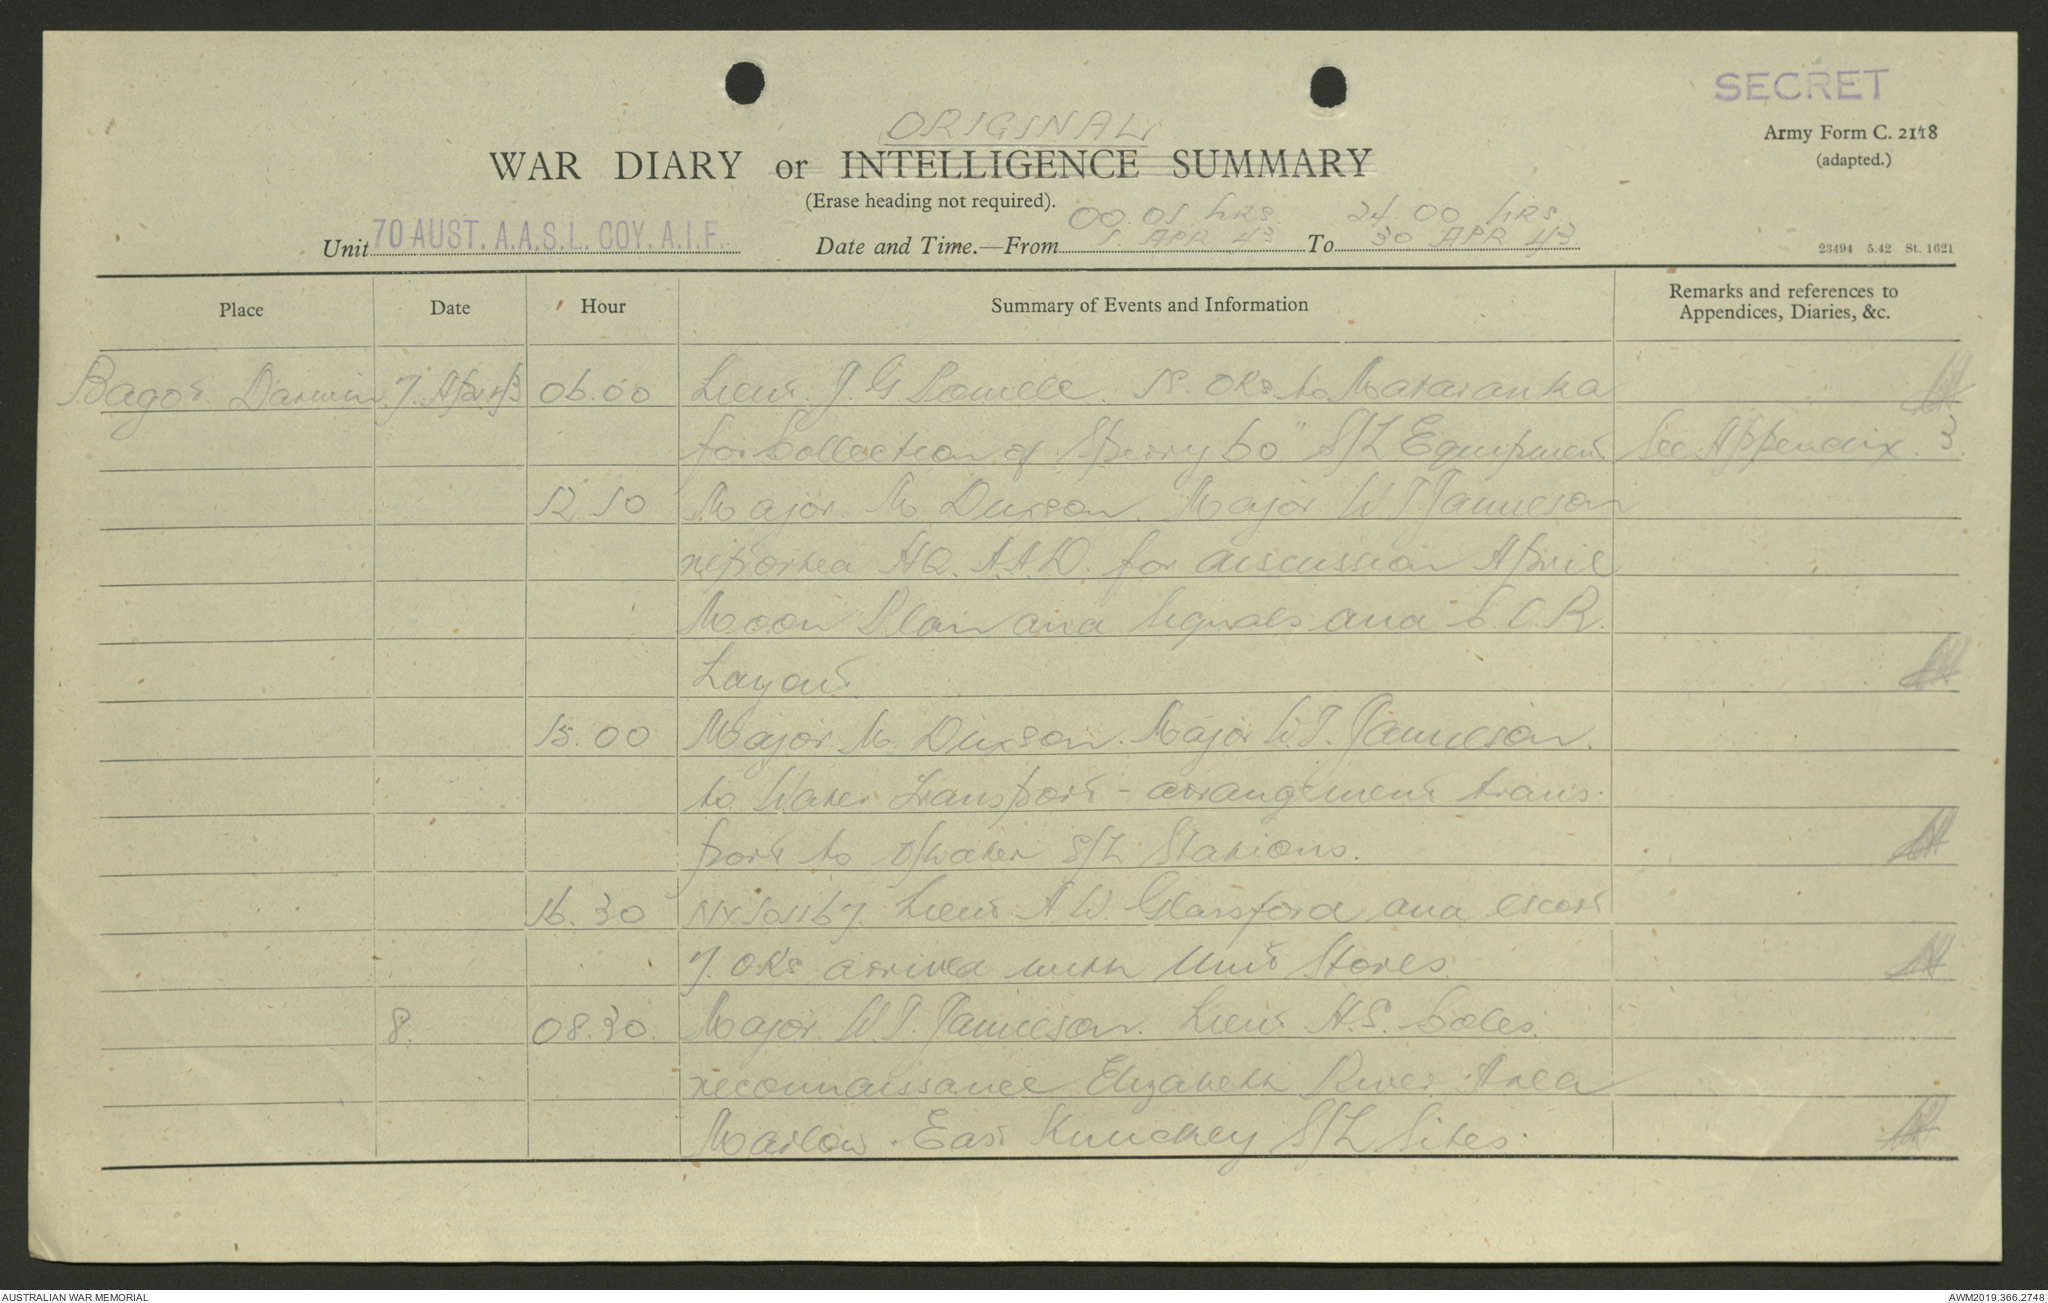 SECRET
Army Form C. 2118
(adapted.)
ORIGINAL
WAR DIARY or INTELLIGENCE SUMMARY
(Erase heading not required).
00.01 hrs 24.00 hrs
Unit 70 AUST. A.A.S.L. COY. A.I.F. Date and Time.—From 1. APR 43 To 30 APR 43
23494 5.42 St. 1621
Place Date Hour Summary of Events and Information Remarks and references to Appendices, Diaries, &c.
Bagot Darwin 7. Apr 43 06.00 Lieut. J. G Powell. 15. ORs. to Mataranka
for Collection of Sperry 60" S/L Equipment See Appendix. 3.
12.10 Major M. Dixson. Major W T. Jamieson
reported HQ. A.A.D. for discussion April
Moon Plan and Signals and G.O.R.
Layout.
15.00 Major M. Dixson. Major W.T. Jamieson.
to Water Transport - arrangement trans-
port to o/water S/L Stations.
16.30 Lieut A W. Glassford and escort
7. ORs arrived with Unit Stores.
8. 08.30. Major. W.T. Jamieson. Lieut H.S. Coles.
reconnaissance Elizabeth River Area
Marlow. East Knuckey S/L Sites.
AUSTRALIAN WAR MEMORIAL
AWM2019.366.2748